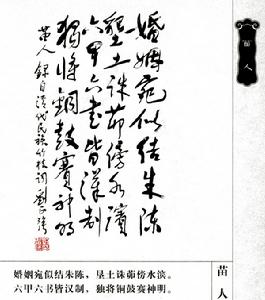 婚姻宛似结朱陈
垦土诛茆傍水濱
六甲六書皆漢制
獨將銅鼓賽神明
苗人 錄自清代民族竹枝詞 劉
苗人
婚姻宛似结朱陈，垦土诛茆傍水滨。
六甲六书皆汉制，独将铜鼓赛神明。
苗人